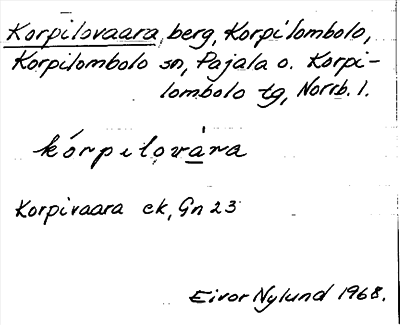 Korpilovaara, berg, Korpilombolo,
Korpilombolo sn, Pajala o. Korpi-
lombolo tg, Norrb. l.
kórpilovàra
Korpivaara ek, Gn 23
Eivor Nylund 1968.